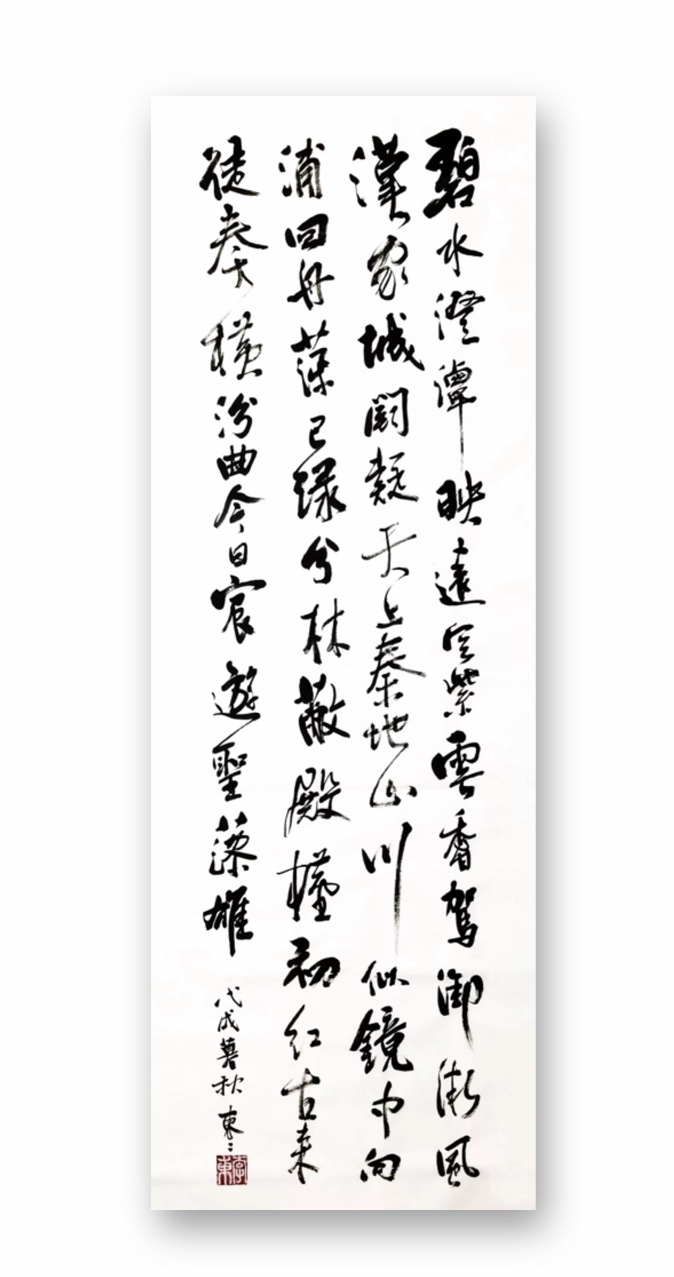 碧水澄潭映遠空紫雲香駕御微風
漢家城闕疑天上秦地山川似鏡中向
浦回舟萍已緑分林蔽殿槿初紅古來
徒奏橫汾曲今日宸遊聖藻雄
戊戌暮秋 東